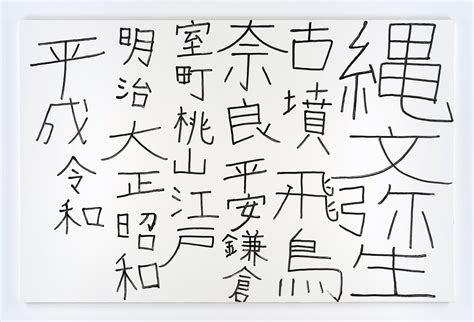 縄文弥生
古墳飛鳥
奈良平安鎌倉
室町桃山江戸
明治大正昭和
平成令和